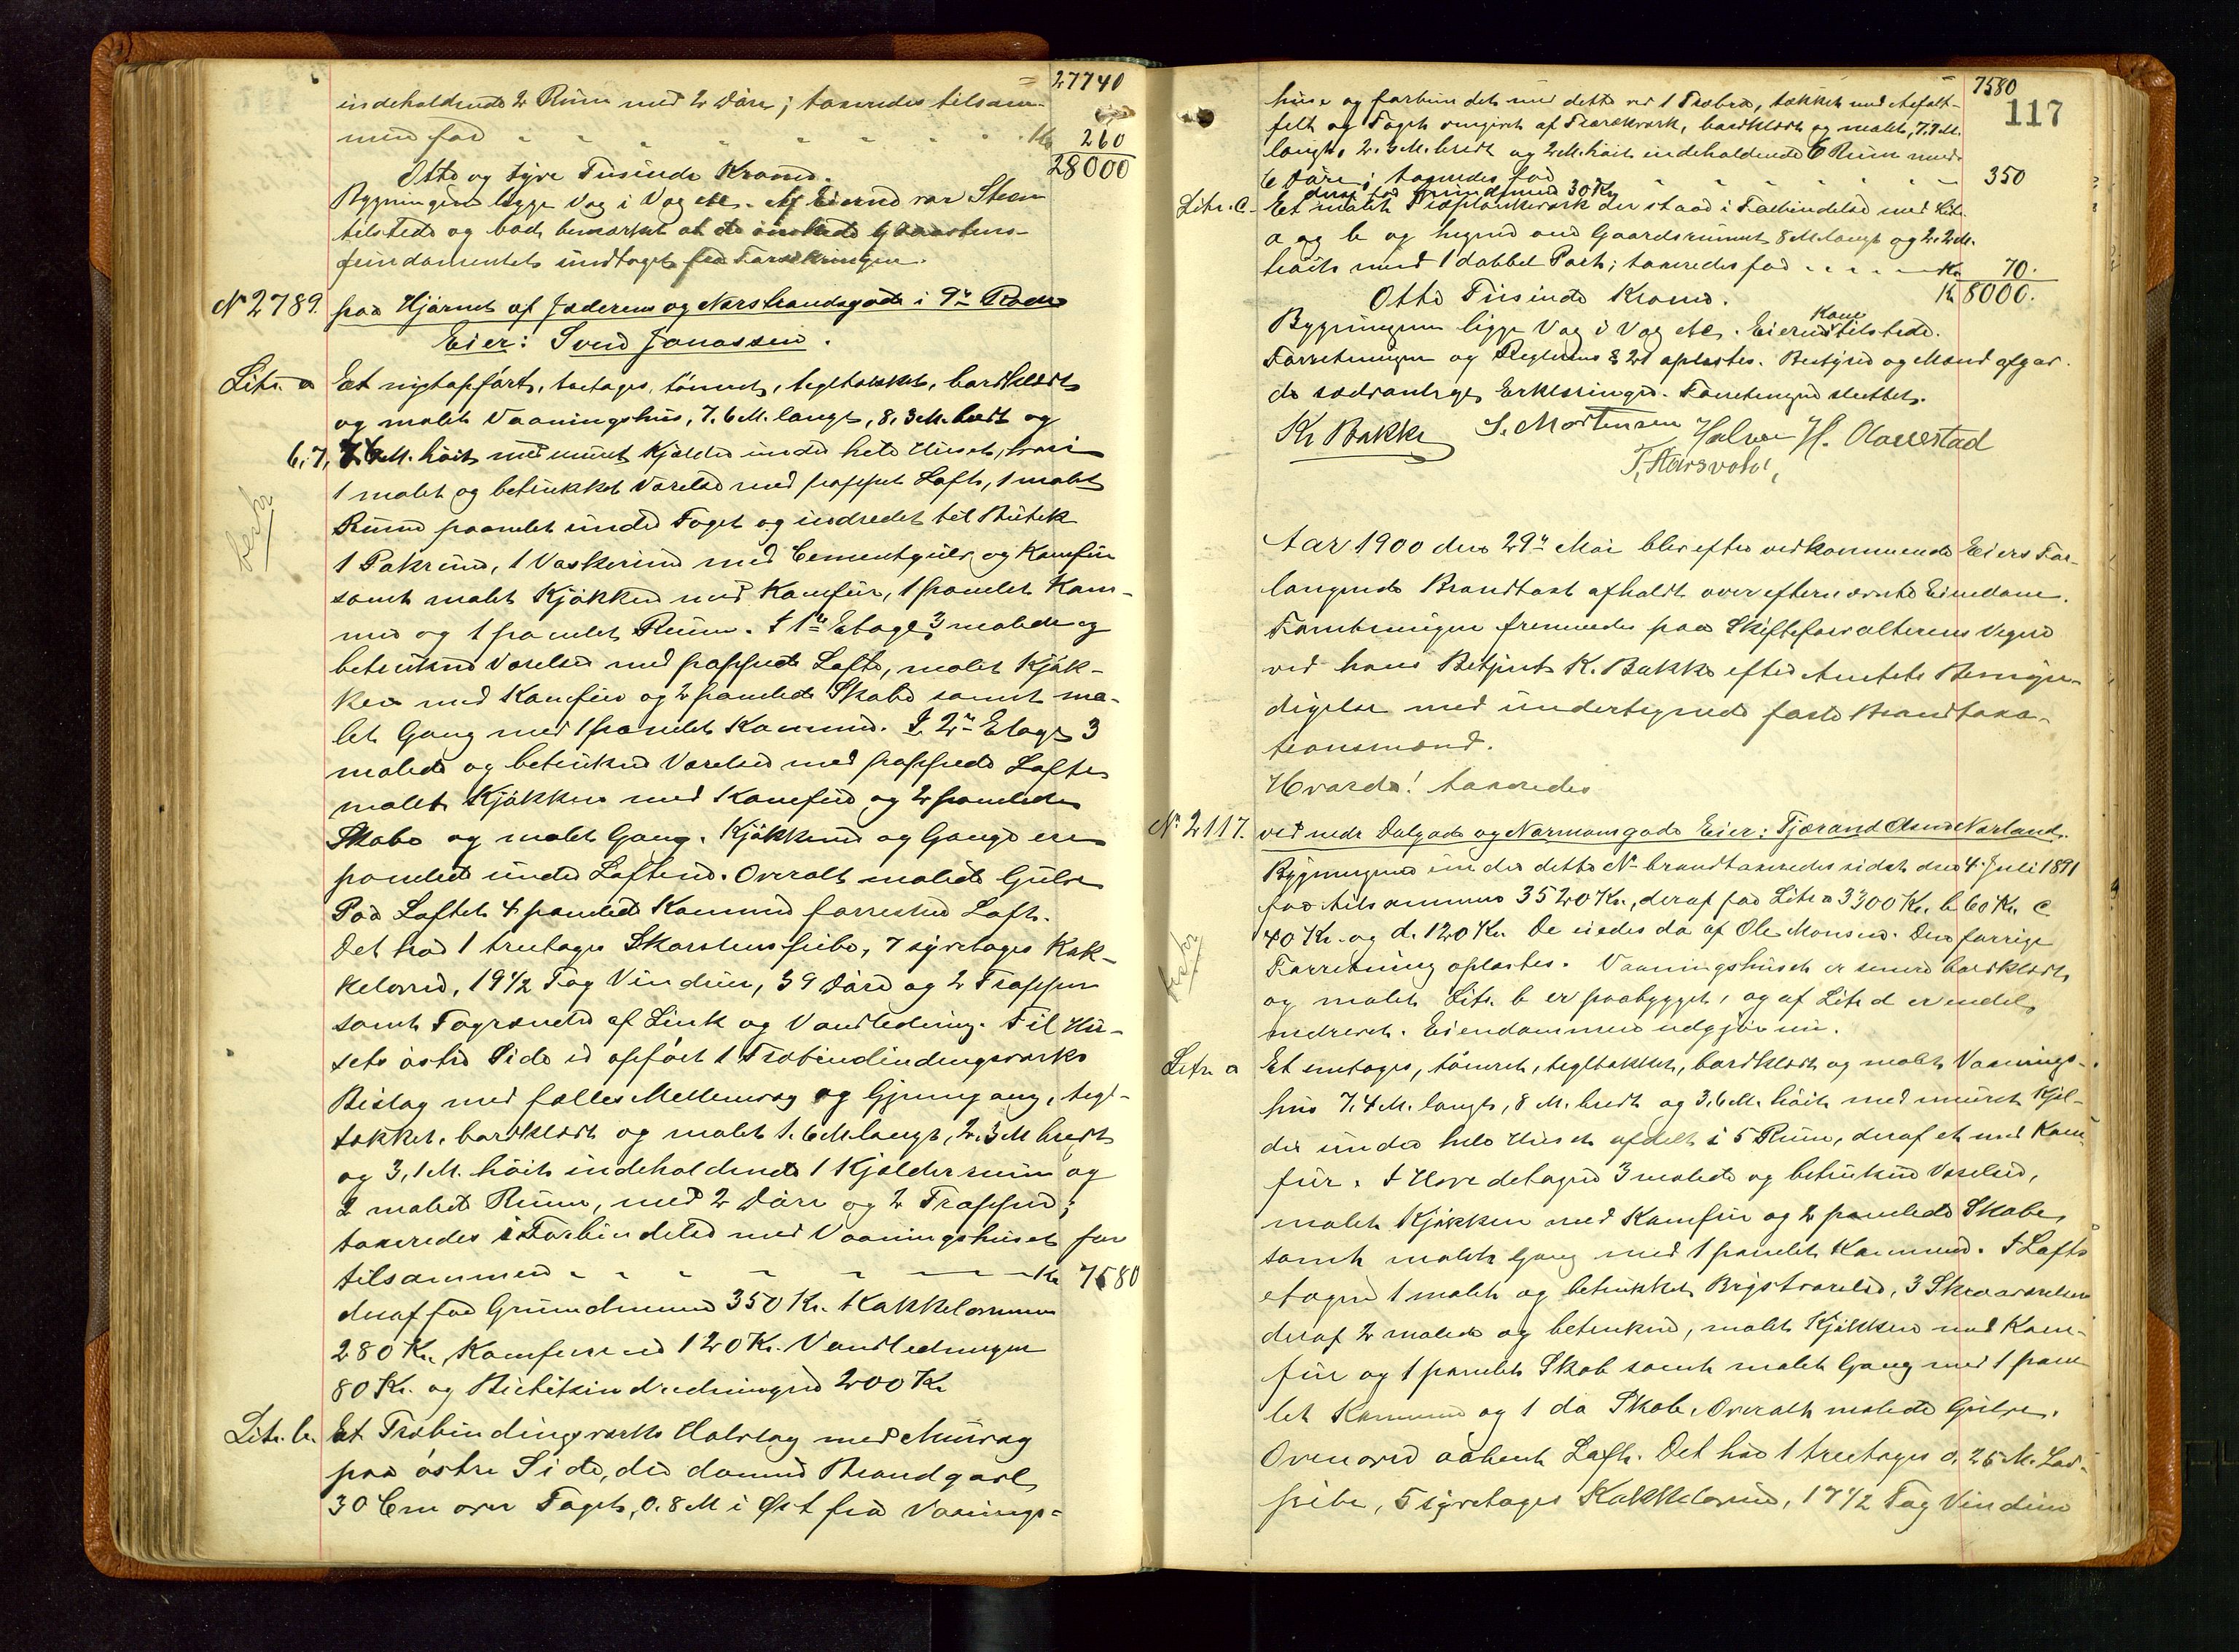 27740
indeholdende 2 Rum med 2 Døre; taxeredes tilsam-
men for - - - - - - - Kr. 260
28000
Otte og tyve Tusinde Kroner.
Bygningen ligge Væg i Væg etc. Af Eierne var Steen
tilstede og bad bemærket at de ønskede Graastens-
fundamentet undtaget fra Forsikringen.
No 2789. paa Hjørnet af Jæderens og Nørstrandsgade i 9de Rode
Eier: Svend Jonassen.
Litr. a Et nyt opført, toetages, tømret, tegltækket, bordklædt
og malet Vaaningshus, 7.6 M. langt, 8,3 M. bredt og
6,7, M. høit, med muret Kjælder under hele Huset, hvori
1 malet og betrukket Værelse med pappet Loft, 1 malet
Rum panelet under Taget og indredet til Butik
1 Pakrum, 1 Vaskerum med Cementgulv og Komfur
samt malet Kjøkken med Komfur, 1 panelet Kam-
mer og 1 panelet Rum. I 1ste Etage 3 malede og
betrukne Værelser med pappede Lofte, malet Kjøk-
ken med Komfur og 2 panelede Skabe samt ma-
let Gang med 1 panelet Kammer. I 2den Etage 3
malede og betrukne Værelser med pappede Lofte
malet Kjøkken med Komfur og 2 panelede
Skabe og malet Gang. Kjøkkener og Gange ere
panelede under Loftene. Overalt malede Gulve
Paa Loftet 4 panelede Kammer forresten Loft.
Det har 1 treetages Skorstenspibe, 7 syvetages Kak-
kelovne, 19 1/2 Fag Vinduer, 39 Døre og 2 Trapper
samt Tagrender af Zink og Vandledning. Til Hu-
sets østre Side er opført 1 Træbindingsværks
Bislag med fælles Mellemvæg og Gjennemgang, tegl-
tækket, bordklædt og malet 1.6 M. langt, 2,3 M bredt
og 3,1 M. høit indeholdende 1 Kjælderrum og
2 malede Rum, med 2 Døre og 2 Trapper;
taxeredes i Forbindelse med Vaaningshuset for
tilsammen - - - - - - Kr. 7580
deraf for Grundmuren 350 Kr. Kakkelovnene
280 Kr., Komfurene 120 Kr. Vandledningen
80 Kr. og Butiksindredningen 200 Kr
Litr. b. Et Træbindingsværks Halvtag med Murvæg
paa østre Side, der danner Brandgavl
30 Cm over Taget, 0.8 M i Øst fra Vaanings-
7580
117
huse og forbundet med dette ved 1 Træbro, tækket med Asfalt-
filt og Taget omgivet af Træværk, bordklædt og malet, 7.7 M.
langt, 2.3 M. bredt og 2 M. høit indeholdende 6 Rum med
6 Døre; taxeredes for - - - - - - 350
deraf for Grundmuren 30 Kr
Litr. c. Et malet Træplankeværk der staar i Forbindelse med Litr.
a og b og hegner om Gaardsrummet 8 M. langt og 2.2 M.
høit med 1 dobbel Port; taxeredes for - - - - Kr. 70.
Otte Tusinde Kroner. Kr 8000.
Bygningen ligge Væg i Væg etc. Eierens Kone tilstede.
Forretningen og Reglerens § 21 oplæstes. Bestyrer og Mænd afgav
de sædvanlige Erklæringer. Forretningen sluttet.
Kr Bakke S. Mortensen Halvor H. Aarrestad
T. Haarsvold,
Aar 1900 den 29de Mai blev efter vedkommende Eiers For-
langende Brandtaxt afholdt over efternævnte Eiendom.
Forretningen fremmedes paa Skifteforvalterens Vegne
ved hans Betjent K. Bakke efter Amtets Bemyn-
digelse med undertegnede faste Brandtaxa-
tionsmænd.
Hvorda! taxeredes
No 2117. ved nedre Dalgade og Normansgade Eier: Tjærand Olsen Norland.
Bygningerne under dette No brandtaxeredes sidst den 4. Juli 1891
for tilsammen 3520 Kr., deraf for Litr a 3300 Kr. b 60 Kr. c
40 Kr. og d. 120 Kr. De eiedes da af Ole Monsen. Den forrige
Forretning oplæstes. Vaaningshuset er senere bordklædt
og malet Litr. b er paabygget, og af Litr d er endel
nedrevet. Eiendommen udgjør nu.
Litr. a Et enetages, tømret, tegltækket, bordklædt og malet Vaanings-
hus 7.4 M. langt, 8 M. bredt og 3.6 M. høit med muret Kjæl-
der under hele Huset afdelt i 5 Rum, deraf et med Kom-
fur. I Hovedetagen 3 malede og betrukne Værelser,
malet Kjøkken med Komfur og 2 panelede Skabe,
samt malet Gang med 1 panelet Kammer. I Lofts
etagen 1 malet og betrukket Brystværelse, 3 Skraaværelser
deraf 2 malede og betrukne, malet Kjøkken med Kom-
fur og 1 panelet Skab samt malet Gang med 1 pane-
let Kammer og 1 do Skab. Overalt malede Gulve.
Ovenover aabent Loft. Det har 1 treetages 0.25 M. Lad-
pibe, 5 syvetages Kakkelovne, 17 1/2 Fag Vinduer